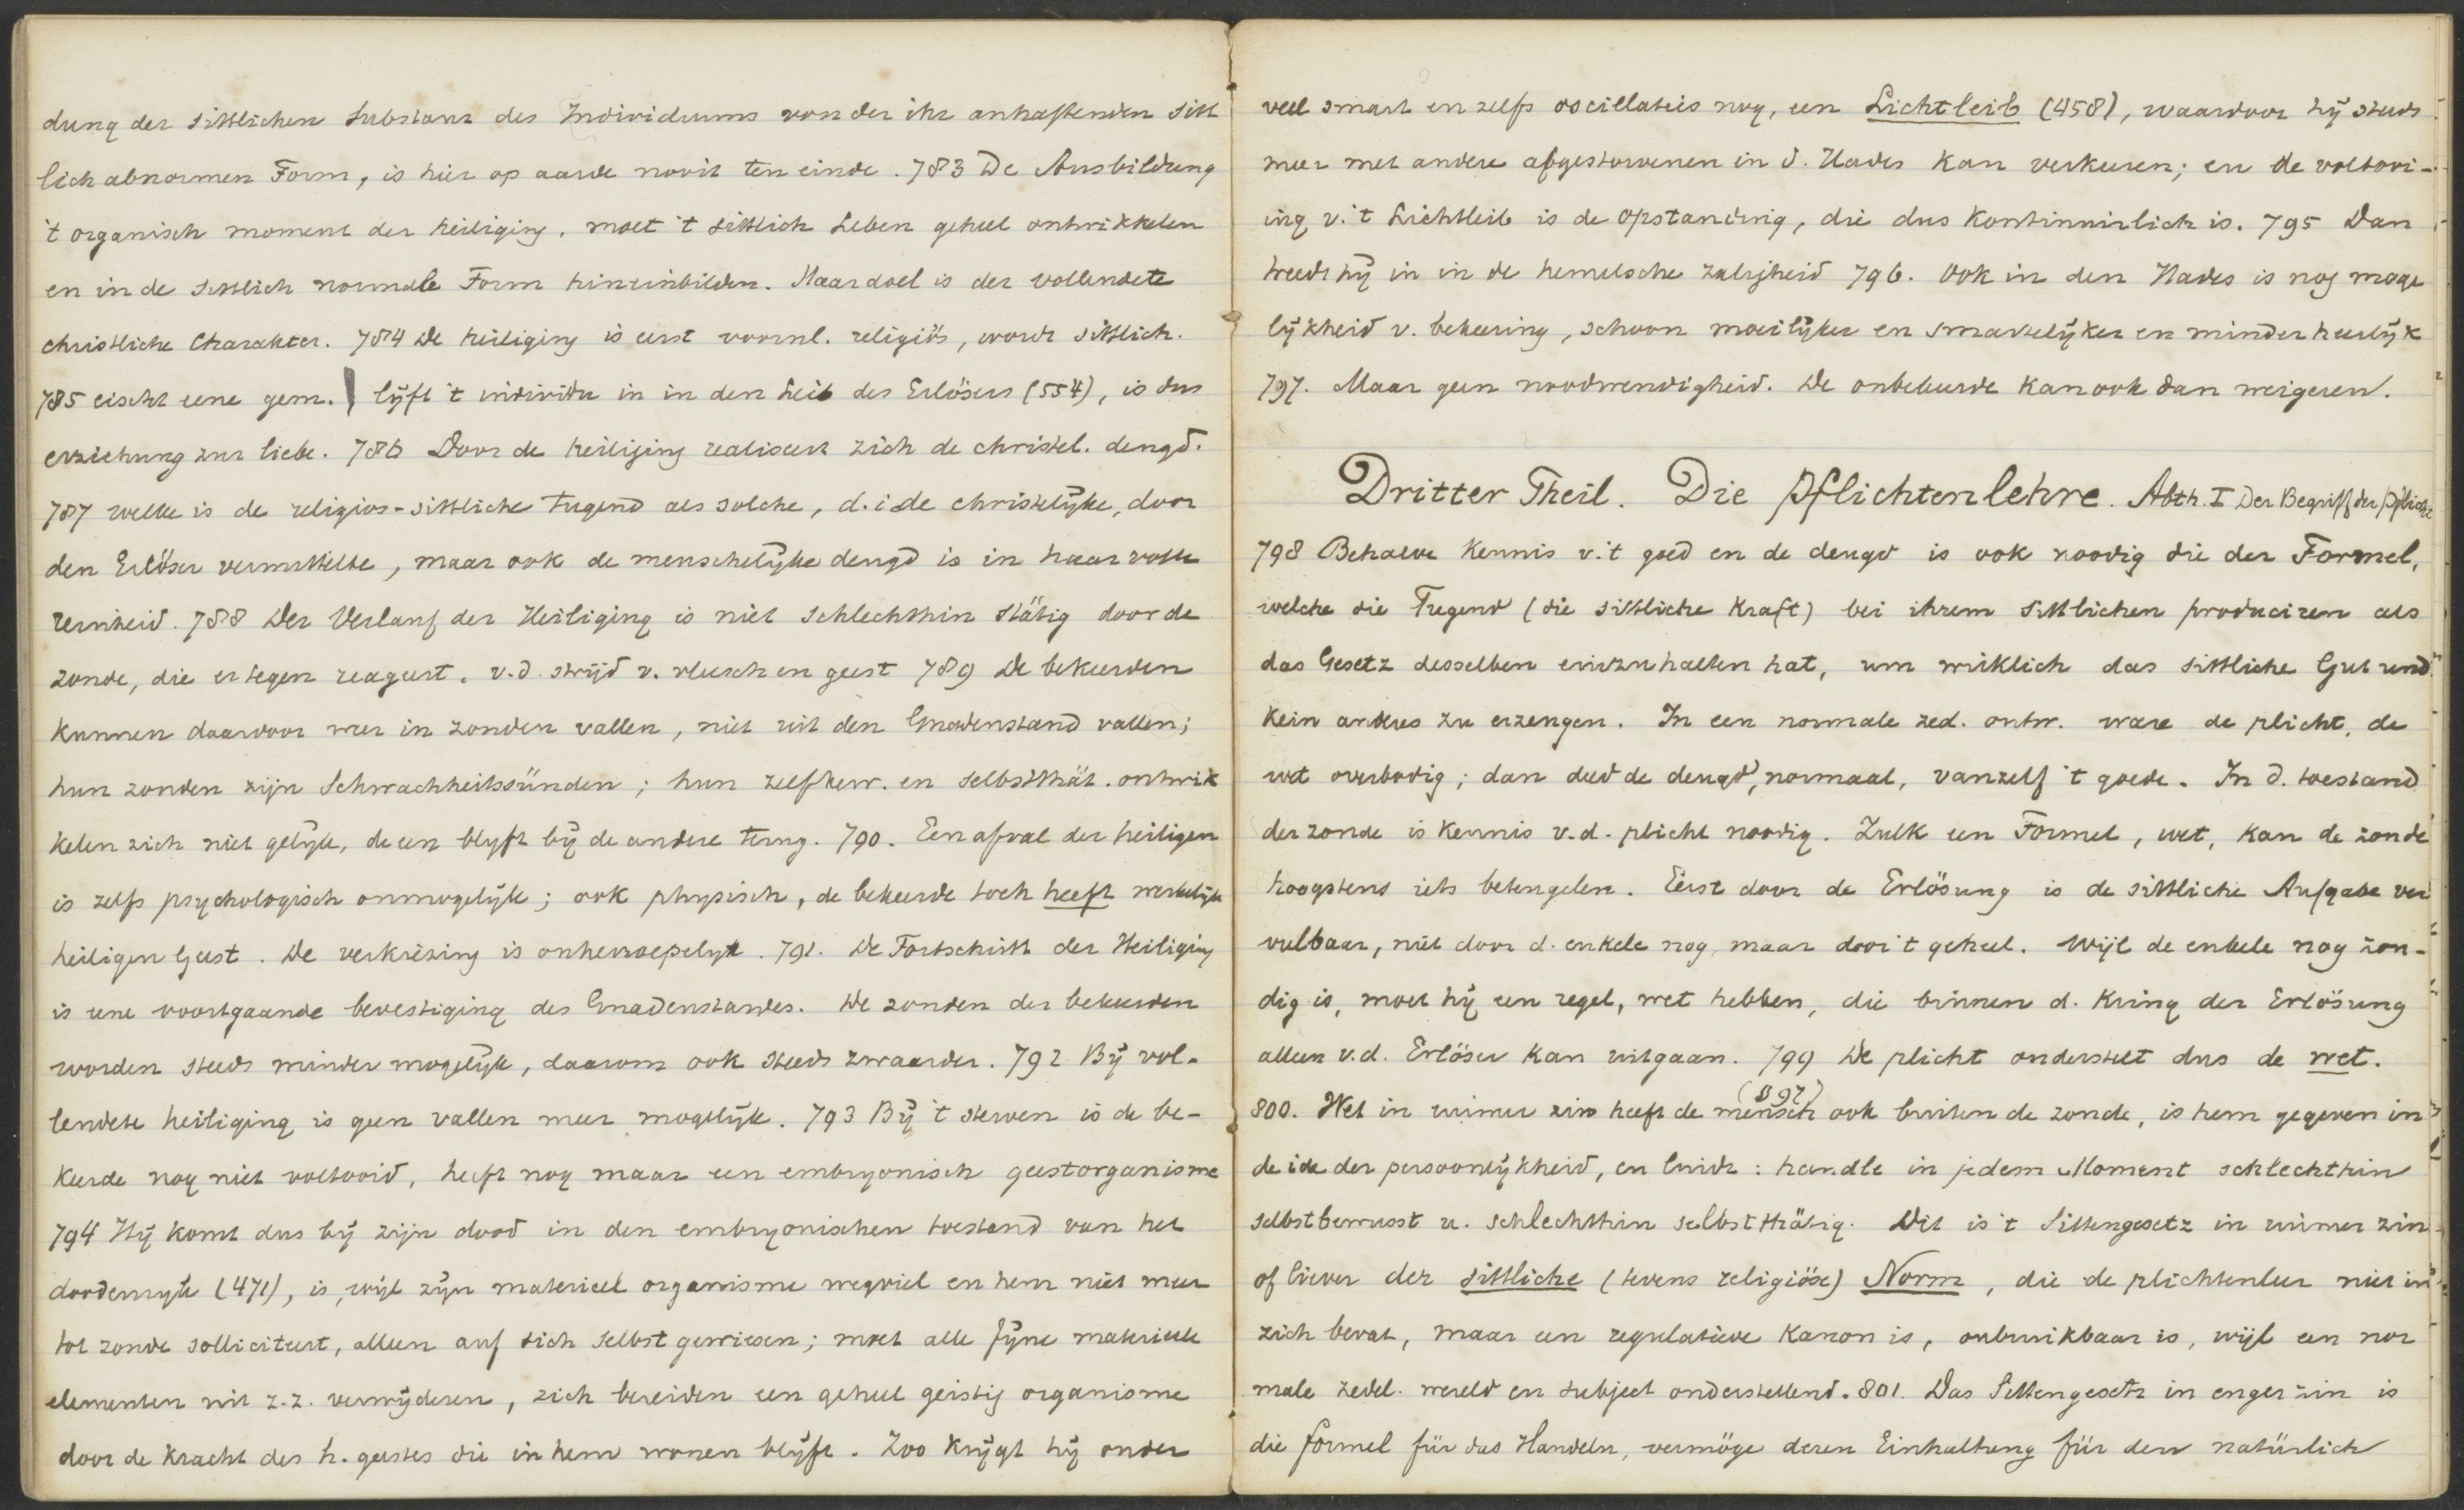 dung der sittlichen Substanz des Individuums von der ihr anhaftenden sitt
lich abnormen Form, is hier op aarde nooit ten einde. 783 De Ausbildung
't organisch moment der heiliging, moet 't sittlich Leben geheel ontwikkelen
en in de sittlich normale Form hineinbilden. Haar doel is der vollendete
christliche Charakter. 784 De heiliging is eerst voornl. religiös, wordt sittlich.
785 eischt eene gem. lijft 't individu in in den Leib des Erlösers (554), is dus
erziehung zur liebe. 786 Door de heiliging realiseert zich de christel. deugd.
787 welke is de religios-sittliche Tugend als solche, d.i. de christelijke, door
den Erlöser vermittelte, maar ook de menschelijke deugd is in haar volle
reinheid. 788 Der Verlauf der Heiliging is niet schlechthin stätig door de
zonde, die er tegen reageert. v.d. strijd v. vleesch en geest 789 De bekeerden
kunnen daardoor weer in zonden vallen, niet uit den Gnadenstand vallen;
hun zonden zijn Schwachheitssünden; hun zelfbew. en selbstthät. ontwik
kelen zich niet gelijk, de een blyft bij de andere terug. 790. Een afval der heiligen
is zelfs psychologisch onmogelijk; ook physisch, de bekeerde toch heeft werkelijk
heiligen Geest. De verkiezing is onherroepelyk. 791. De Fortschritt der Heiliging
is eene voortgaande bevestiging des Gnadenstandes. De zonden der bekeerden
worden steeds minder mogelijk, daarom ook steeds zwaarder. 792 Bij vol-
lendete heiliging is geen vallen meer mogelijk. 793 Bij 't sterven is de be-
keerde nog niet voltooid, heeft nog maar een embryonisch geestorganisme
794 Hij komt dus bij zijn dood in den embryonischen toestand van het
doodenrijk (471), is, wijl zijn materieel organisme wegviel en hem niet meer
tot zonde solliciteert, alleen auf sich selbst gewiesen; moet alle fijne materieele
elementen uit z.z. verwijderen, zich bereiden een geheel geistig organisme
door de kracht des h. geestes die in hem wonen blijft. Zoo krijgt hij onder
veel smart en zelfs oscillaties nog, een Lichtleib (458), waardoor hij steeds
meer met andere afgestorvenen in d. Hades kan verkeeren; en de voltooi-
ing v.'t Lichtleib is de opstanding, die dus kontinuirlich is. 795 Dan
treedt hij in in de hemelsche zaligheid 796. Ook in den Hades is nog moge
lijkheid v. bekeering, schoon moeilijker en smartelijker en minder heerlijk
797. Maar geen noodwendigheid. De onbekeerde kan ook dan weigeren.
Dritter Theil. Die Pflichtenlehre. Abth. I Der Begriff der Pflicht
798 Behalve kennis v.'t goed en de deugd is ook noodig die der Formel,
welche die Tugend (die sittliche Kraft) bei ihrem sittlichen produciren als
das Gesetz desselben einzuhalten hat, um wirklich das sittliche Gut und
kein anderes zu erzeugen. In een normale zed. ontw. ware de plicht, de
wet overbodig; dan deed de deugd, normaal, vanzelf 't goede. In d. toestand
der zonde is kennis v.d. plicht noodig. Zulk een Formel, wet, kan de zonde
hoogstens iets beteugelen. Eerst door de Erlösung is de sittliche Aufgabe ver
vulbaar, niet door d. enkele nog, maar door 't geheel. Wijl de enkele nog zon-
dig is, moet hij een regel, wet hebben, die binnen d. kring der Erlösung
alleen v.d. Erlöser kan uitgaan. 799 De plicht onderstelt dus de wet.
(897)
800. Wet in ruimer zin heeft de mensch ook buiten de zonde, is hem gegeven in
de idee der persoonlijkheid, en luidt: handle in jedem Moment schlechthin
selbstbewusst u. schlechthin selbstthätig. Dit is 't Sittengesetz in ruimer zin
of liever der sittliche (tevens religiöse) Norm, die de plichtenleer niet in
zich bevat, maar een regulatieve kanon is, onbruikbaar is, wijl een nor
male zedel. wereld en subject onderstellend. 801. Das Sittengesetz in enger zin is
die formel für das Handeln, vermöge deren Einhaltung für den natürlich